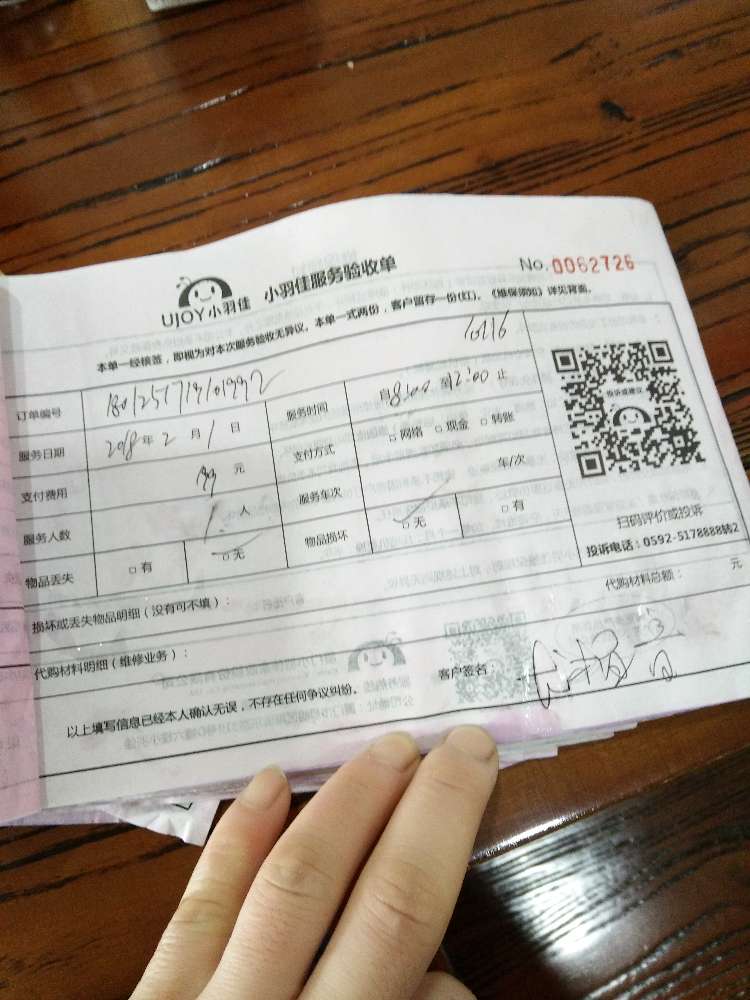 UJOY小羽佳 小羽佳服务验收单 No.0062726
本单一经核签，即视为对本次服务验收无异议。本单一式两份，客户留存一份(红)。《维保须知》详见背面。
10116
订单编号 服务时间 月8:00至12:00止
服务日期 2018年2月1日 支付方式 □网络 □现金 □转账
支付费用 元 服务车次 车/次
服务人数 1人 物品损坏 □无 □有
物品丢失 □有 □无
投诉或建议
扫码评价或投诉
投诉电话：0592-5178888转2
损坏或丢失物品明细（没有可不填）：
代购材料明细（维修业务）： 代购材料总额： 元
客户签名：
以上填写信息已经本人确认无误，不存在任何争议纠纷。